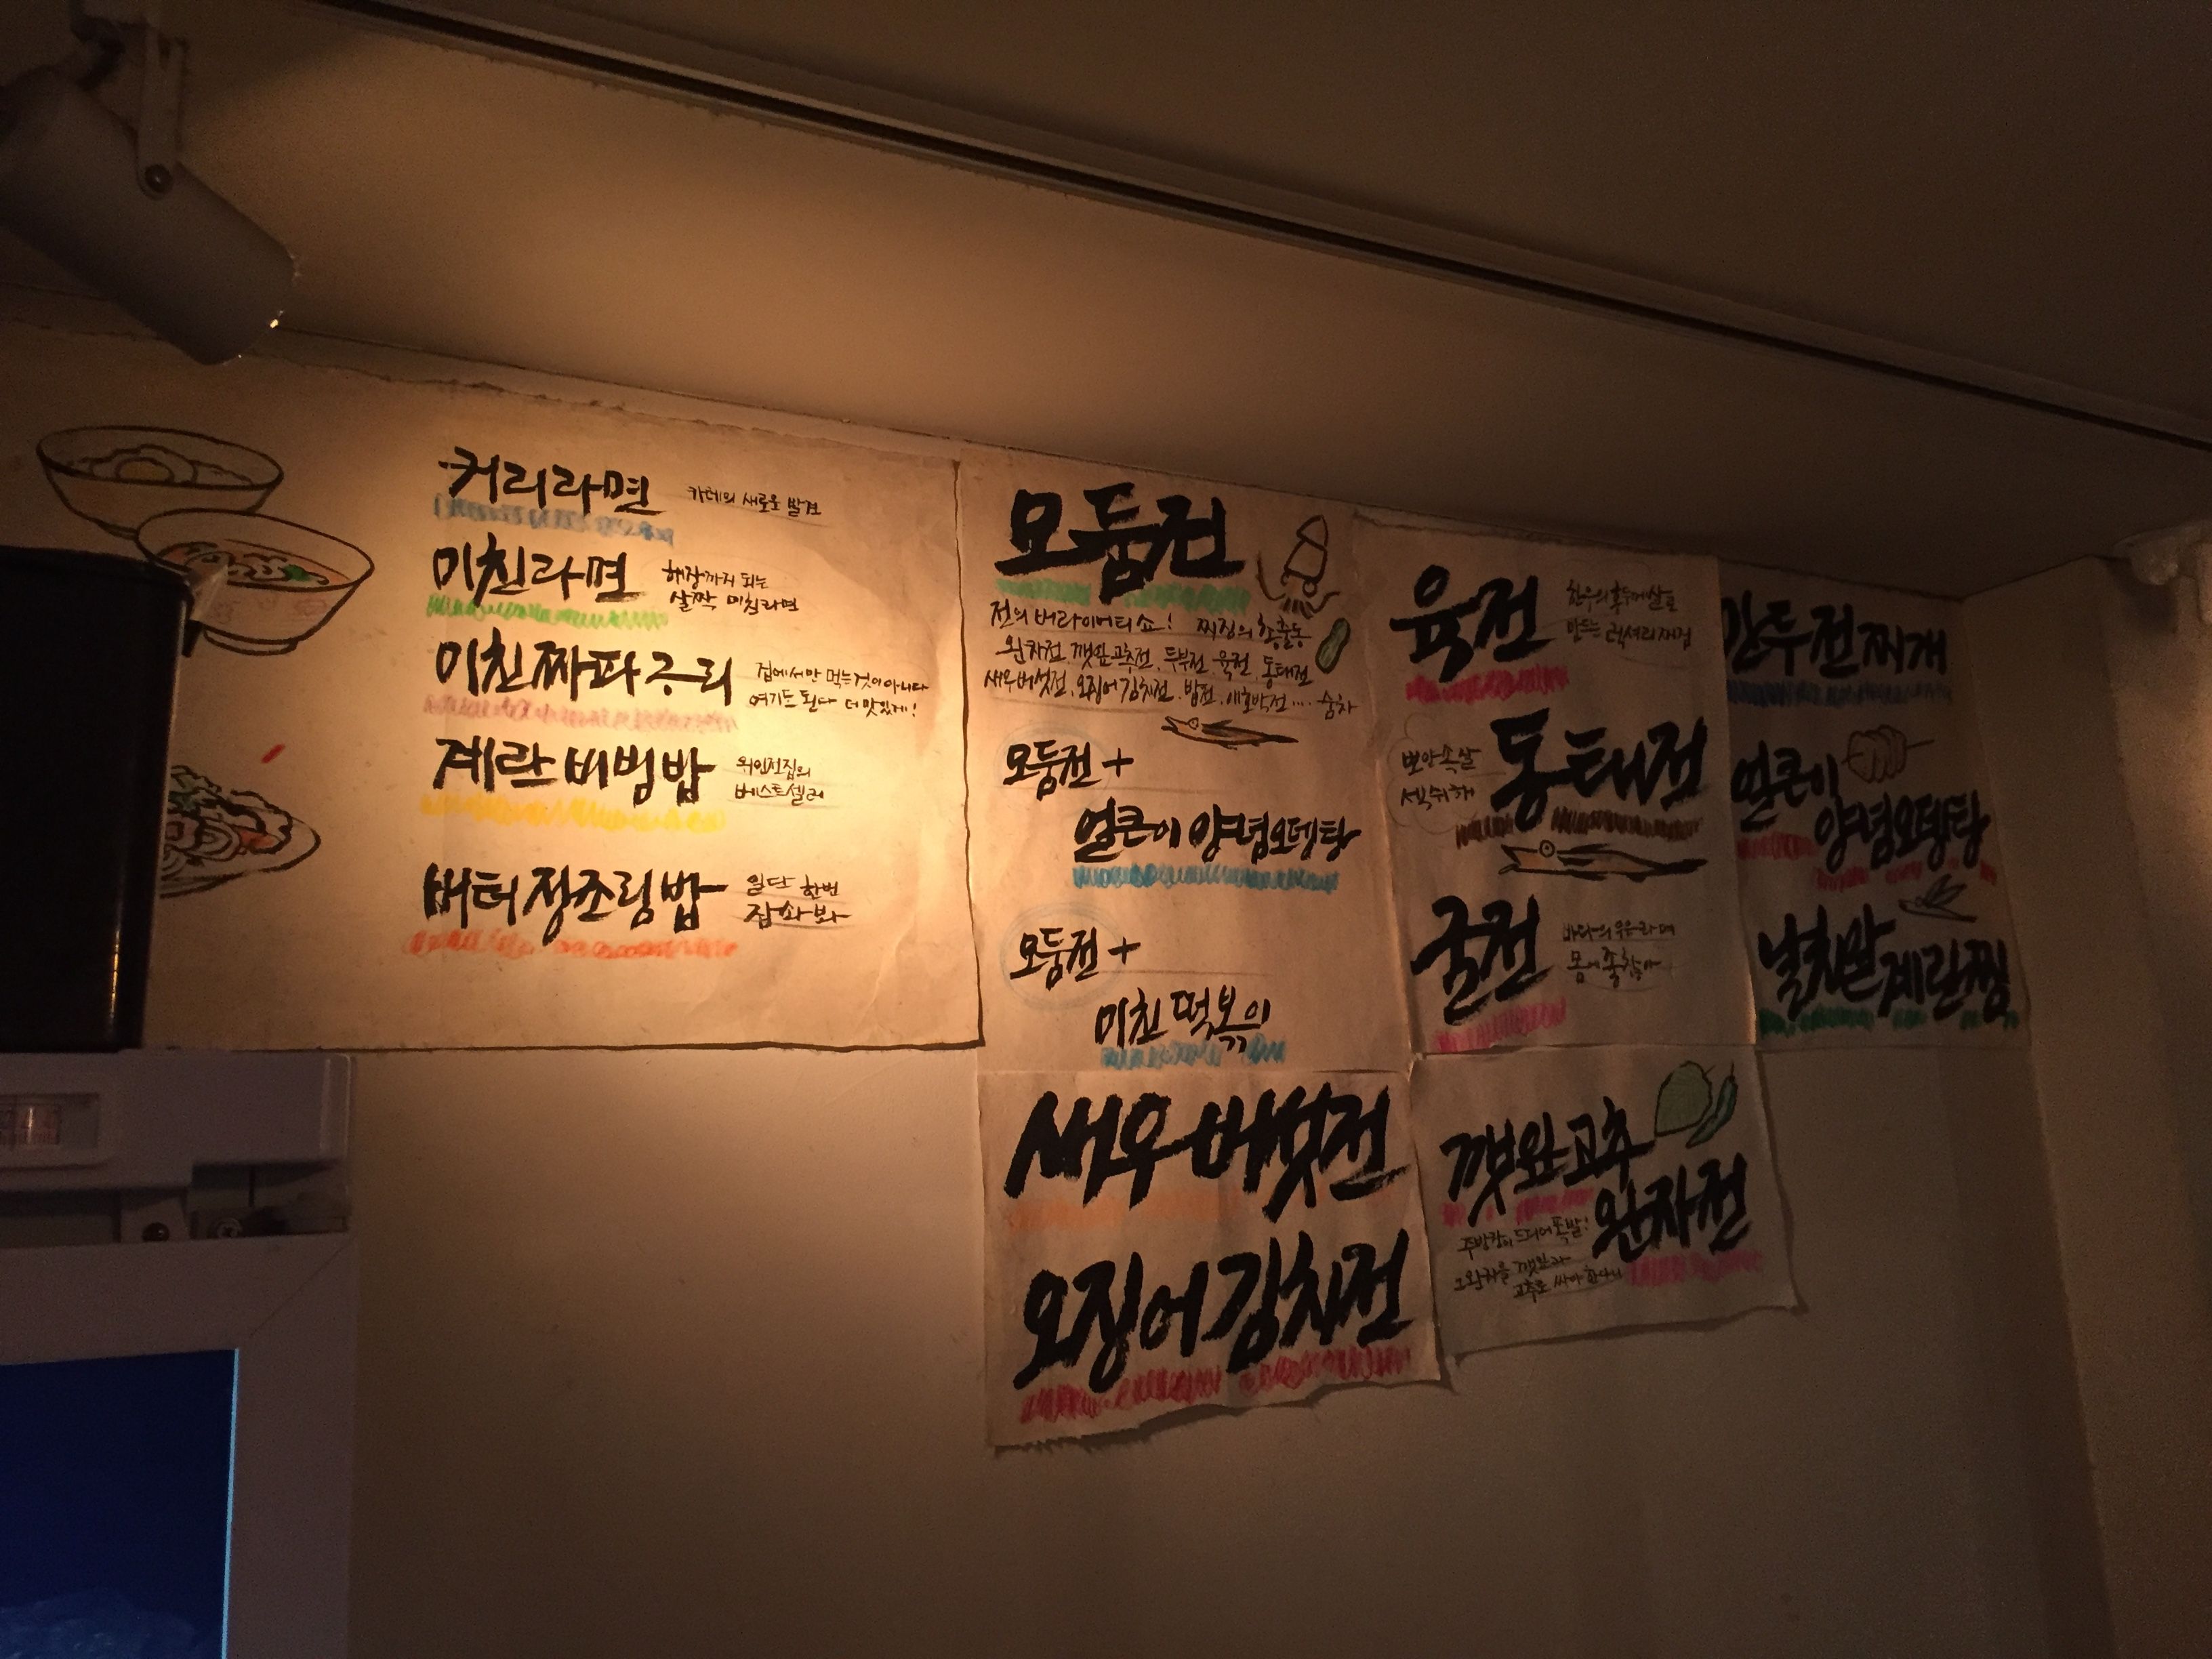 커리라면
카레의 새로운 발견
미친라면
해장까지 되는
살짝 미친라면
미친짜파구리
집에서만 먹는것이 아니다
여기도 된다 더 맛있게!
계란비빔밥
위인전집의
베스트셀러
버터장조림밥
일단 한번
잡솨봐
모둠전
전의 버라이어티쇼!
완자전, 깻잎고추전, 두부전, 육전, 동태전
새우버섯전, 오징어김치전, 밥전, 애호박전.... 숨차
모둠전 +
얼큰이 양념오뎅탕
모둠전 +
미친 떡볶이
새우버섯전
오징어김치전
육전
한우의 홍두깨살로
만든 럭셔리
동태전
뽀얀속살
섹쉬해
굴전
바다의 우유라며
몸에 좋잖아
깻잎고추
완자전
주방장이 드디어 폭발!
깻잎과
고추로 싸야 한다니
만두전찌개
얼큰이
양념오뎅탕
날치알
계란찜